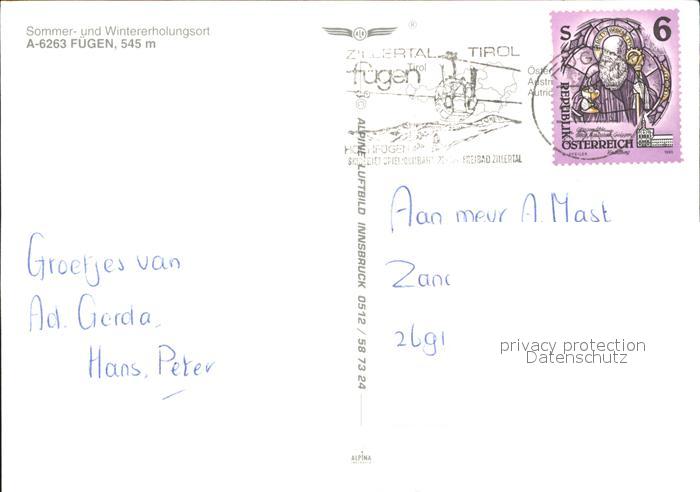 Sommer- und Wintererholungsort
A-6263 FÜGEN, 545 m
Groetjes van
Ad. Gerda,
Hans, Peter
®
© ALPINE LUFTBILD INNSBRUCK 0512 / 58 73 24
ALPINA
ZILLERTAL TIROL
fügen Tirol
HOCHFÜGEN
FREIBAD ZILLERTAL
S 6
REPUBLIK
ÖSTERREICH
Aan mevr A. Mast
Zand
2691
privacy protection
Datenschutz